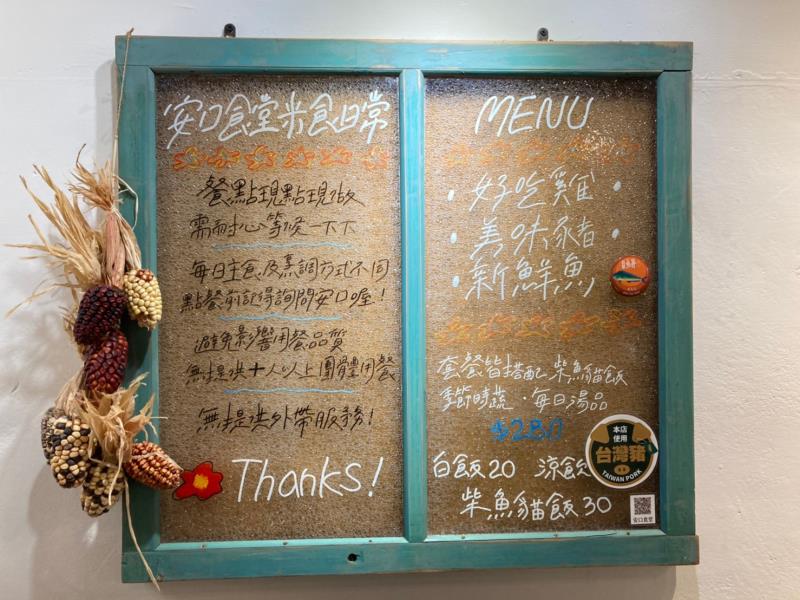 安口食堂米食日常
餐點現點現做
需耐心等候一下下
每日主食及烹調方式不同
點餐前記得詢問安口喔！
避免影響用餐品質
無提供十人以上團體用餐
無提供外帶服務！
Thanks!
MENU
・好吃雞・
・美味豬・
・新鮮魚
套餐皆搭配柴魚貓飯
季節時蔬・每日湯品
$280
白飯20 涼飲
柴魚貓飯30
本店
使用
台灣豬
TAIWAN PORK
安口食堂